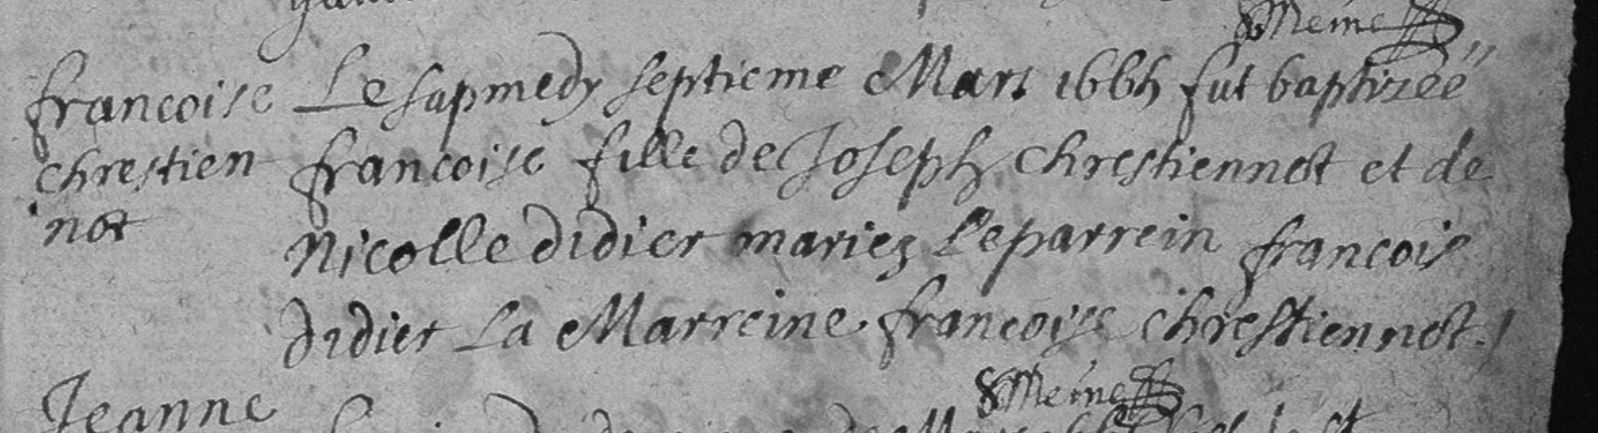 Meine
francoise Le sapmedy septieme Mars 1665 fut baptizée
chrestien francoise fille de Joseph chrestiennot et de
not Nicolle didier mariez Le parrein francois
didier La Marreine francoise chrestiennot.
Meine
Jeanne